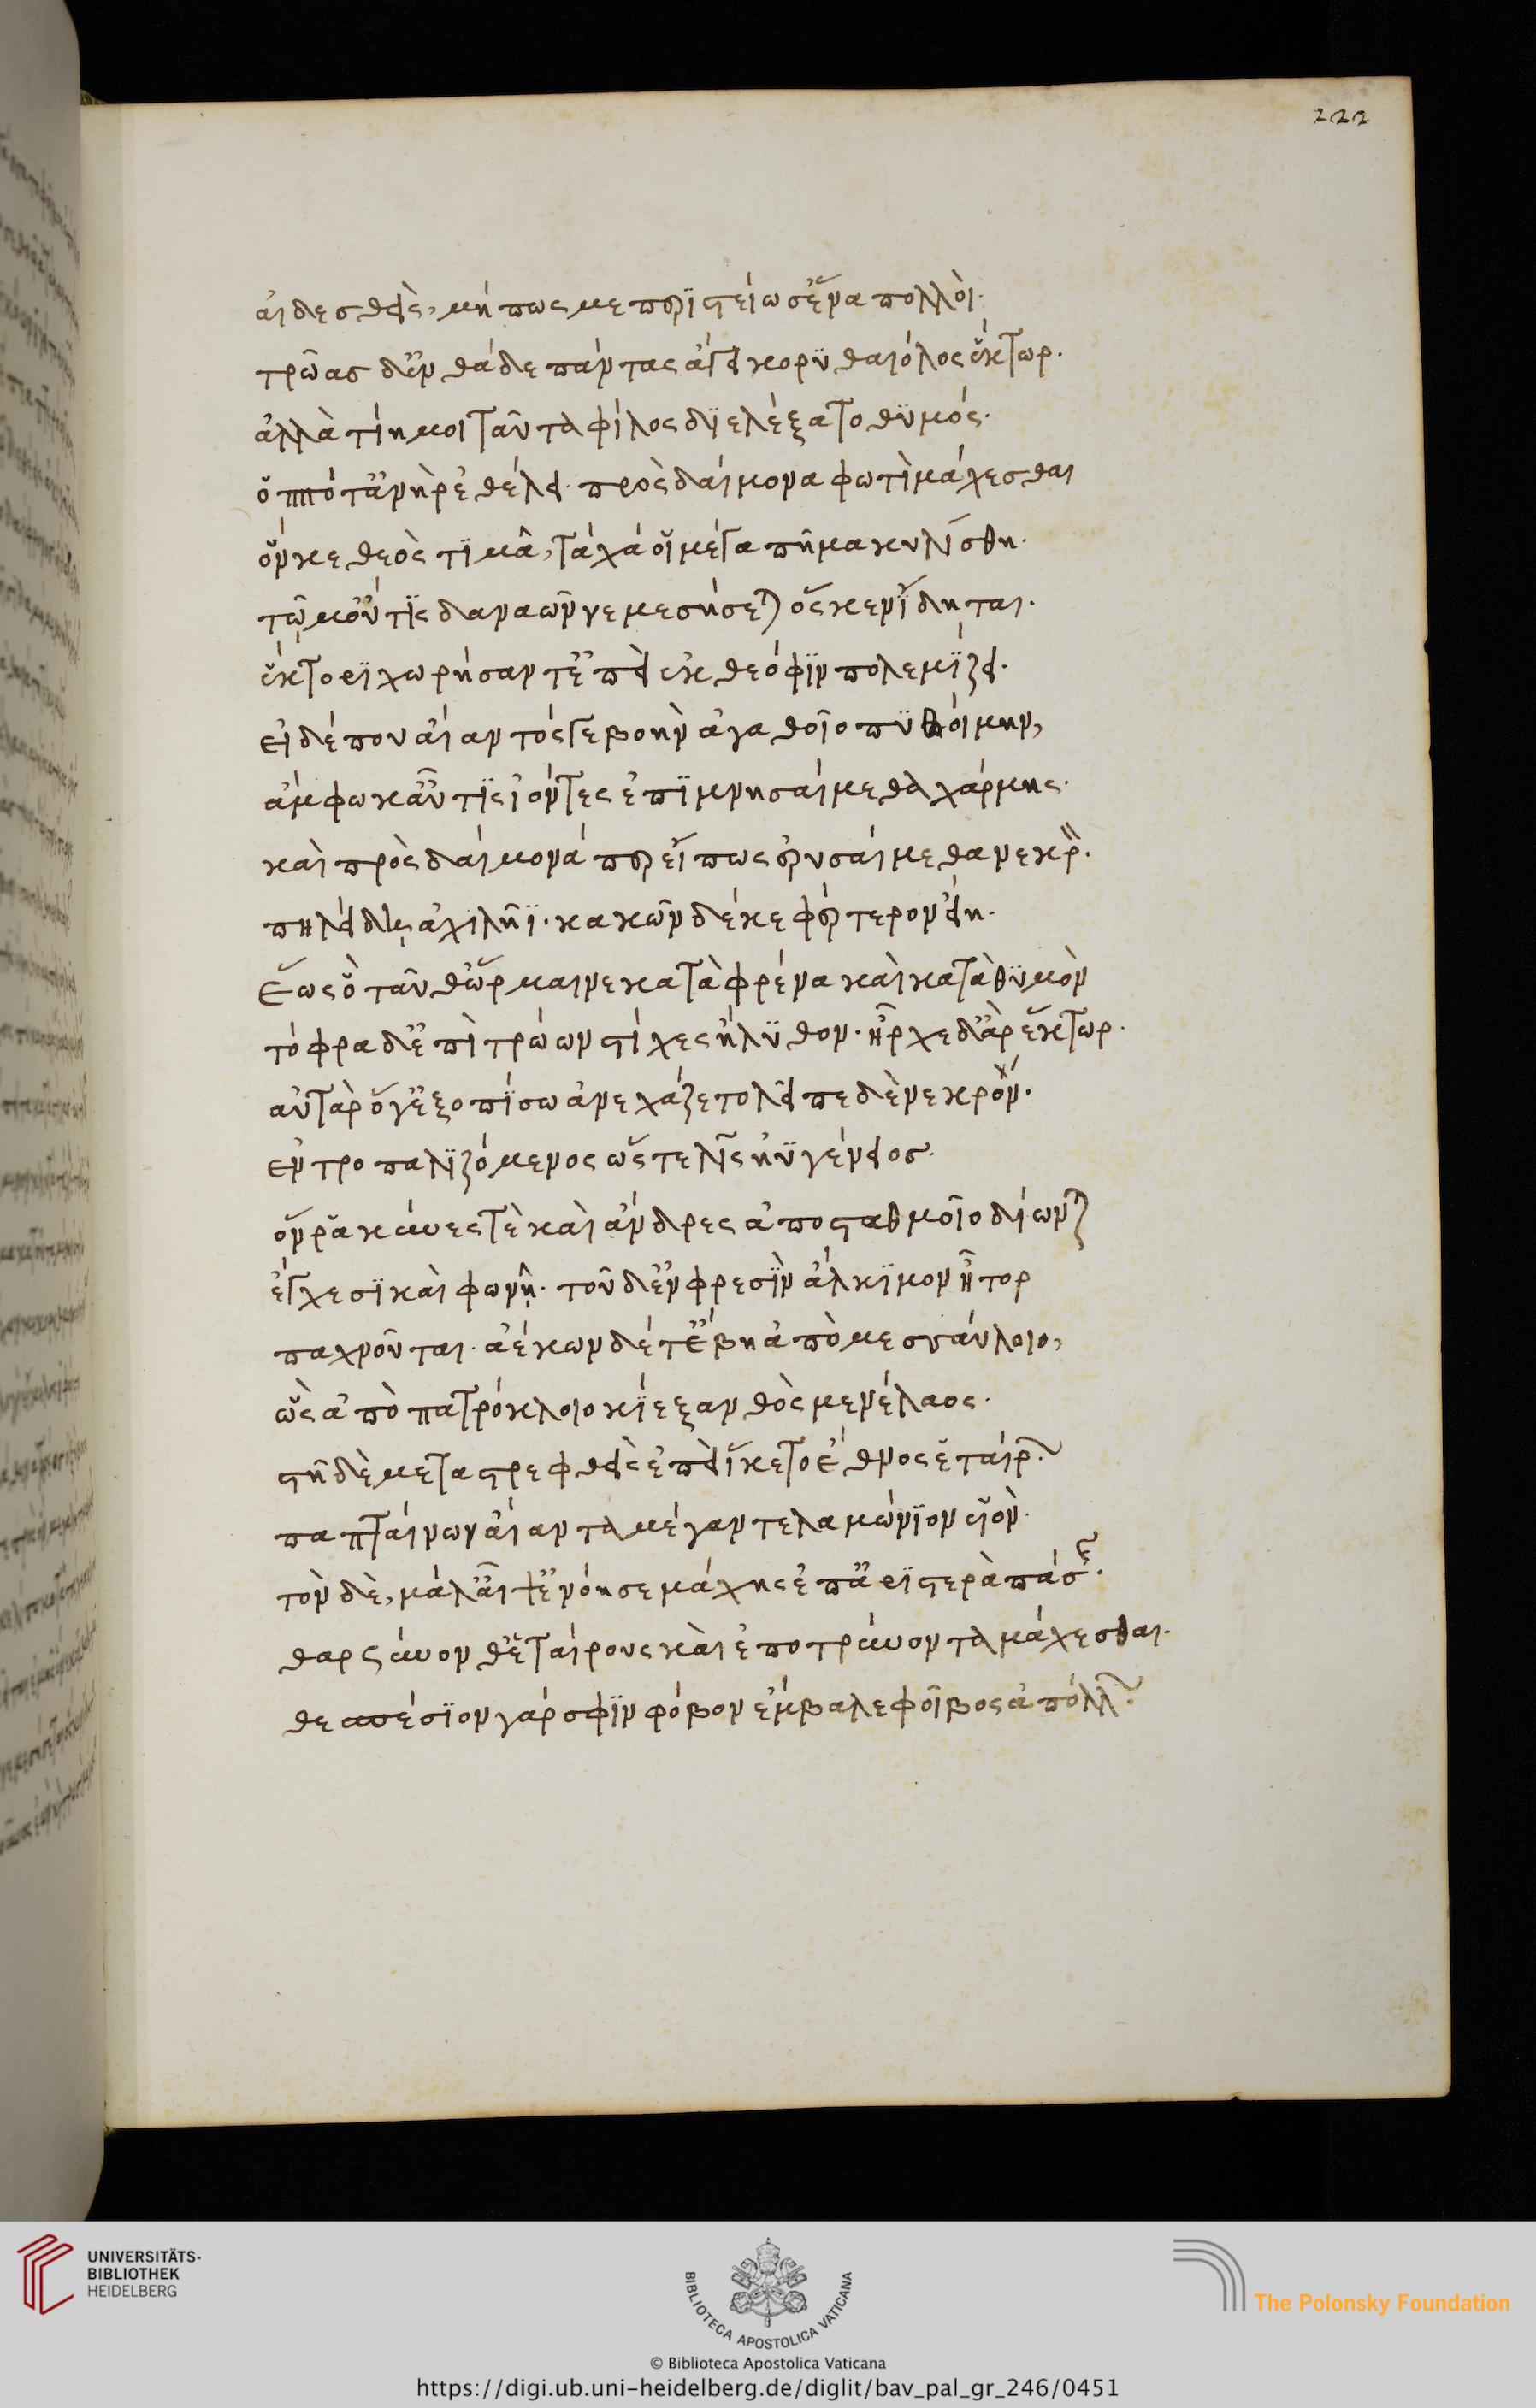 222
αἰδεσθεὶς, μή πως με περιστείωσ' ἕνα πολλοί·
τρῶας δ' ἐνθάδε πάντας ἄγει κορυθαιόλος ἕκτωρ.
ἀλλὰ τί ἢ μοι ταῦτα φίλος διελέξατο θυμός·
ὁππότ' ἀνὴρ ἐθέλει πρὸς δαίμονα φωτὶ μάχεσθαι
ὅν κε θεὸς τιμᾷ, τάχά οἱ μέγα πῆμα κυλίσθη·
τῷ μ' οὔτις δαναῶν νεμεσήσεται ὅς κεν ἴδηται.
ἕκτορι χωρήσαντ' ἐπεὶ ἐκ θεόφιν πολεμίζει·
εἰ δέ που αἴαντός γε βοὴν ἀγαθοῖο πυθοίμην,
ἄμφω κ' αὖτις ἰόντες ἐπιμνησαίμεθα χάρμης·
καὶ πρὸς δαίμονά περ εἴ πως ἐρυσαίμεθα νεκρὸν·
πηλείδῃ ἀχιλῆϊ· κακῶν δέ κε φέρτερον εἴη·
ἕως ὃ ταῦθ' ὥρμαινε κατὰ φρένα καὶ κατὰ θυμὸν
τόφρα δ' ἐπὶ τρώων στίχες ἤλυθον· ἦρχε δ' ἄρ' ἕκτωρ.
αὐτὰρ ὅγ' ἐξοπίσω ἀνεχάζετο λεῖπε δὲ νεκρόν·
ἐντροπαλιζόμενος ὥς τε λῖς ἠυγένειος·
ὅν ῥα κύνες τὲ καὶ ἄνδρες ἀπο σταθμοῖο δίωνται
ἔγχεσι καὶ φωνῇ· τοῦ δ' ἐν φρεσὶν ἄλκιμον ἦτορ
παχνοῦται· ἀέκων δέ τ' ἔβη ἀπὸ μεσσαύλοιο,
ὣς ἀπὸ πατρόκλοιο κίε ξανθὸς μενέλαος·
στῆ δὲ μεταστρεφθεὶς ἐπεὶ ἵκετο ἔθνος ἑταίρων
παπταίνων αἴαντα μέγαν τελαμώνιον υἱὸν·
τὸν δὲ, μάλ' αἶψ' ἐνόησε μάχης ἐπ' ἀριστερὰ πάσης·
θαρσύνονθ' ἑταίρους καὶ ἐποτρύνοντα μάχεσθαι·
θεσπέσιον γάρ σφιν φόβον ἔμβαλε φοῖβος ἀπόλλων·
UNIVERSITÄTS-
BIBLIOTHEK
HEIDELBERG
BIBLIOTECA APOSTOLICA VATICANA
The Polonsky Foundation
© Biblioteca Apostolica Vaticana
https://digi.ub.uni-heidelberg.de/diglit/bav_pal_gr_246/0451